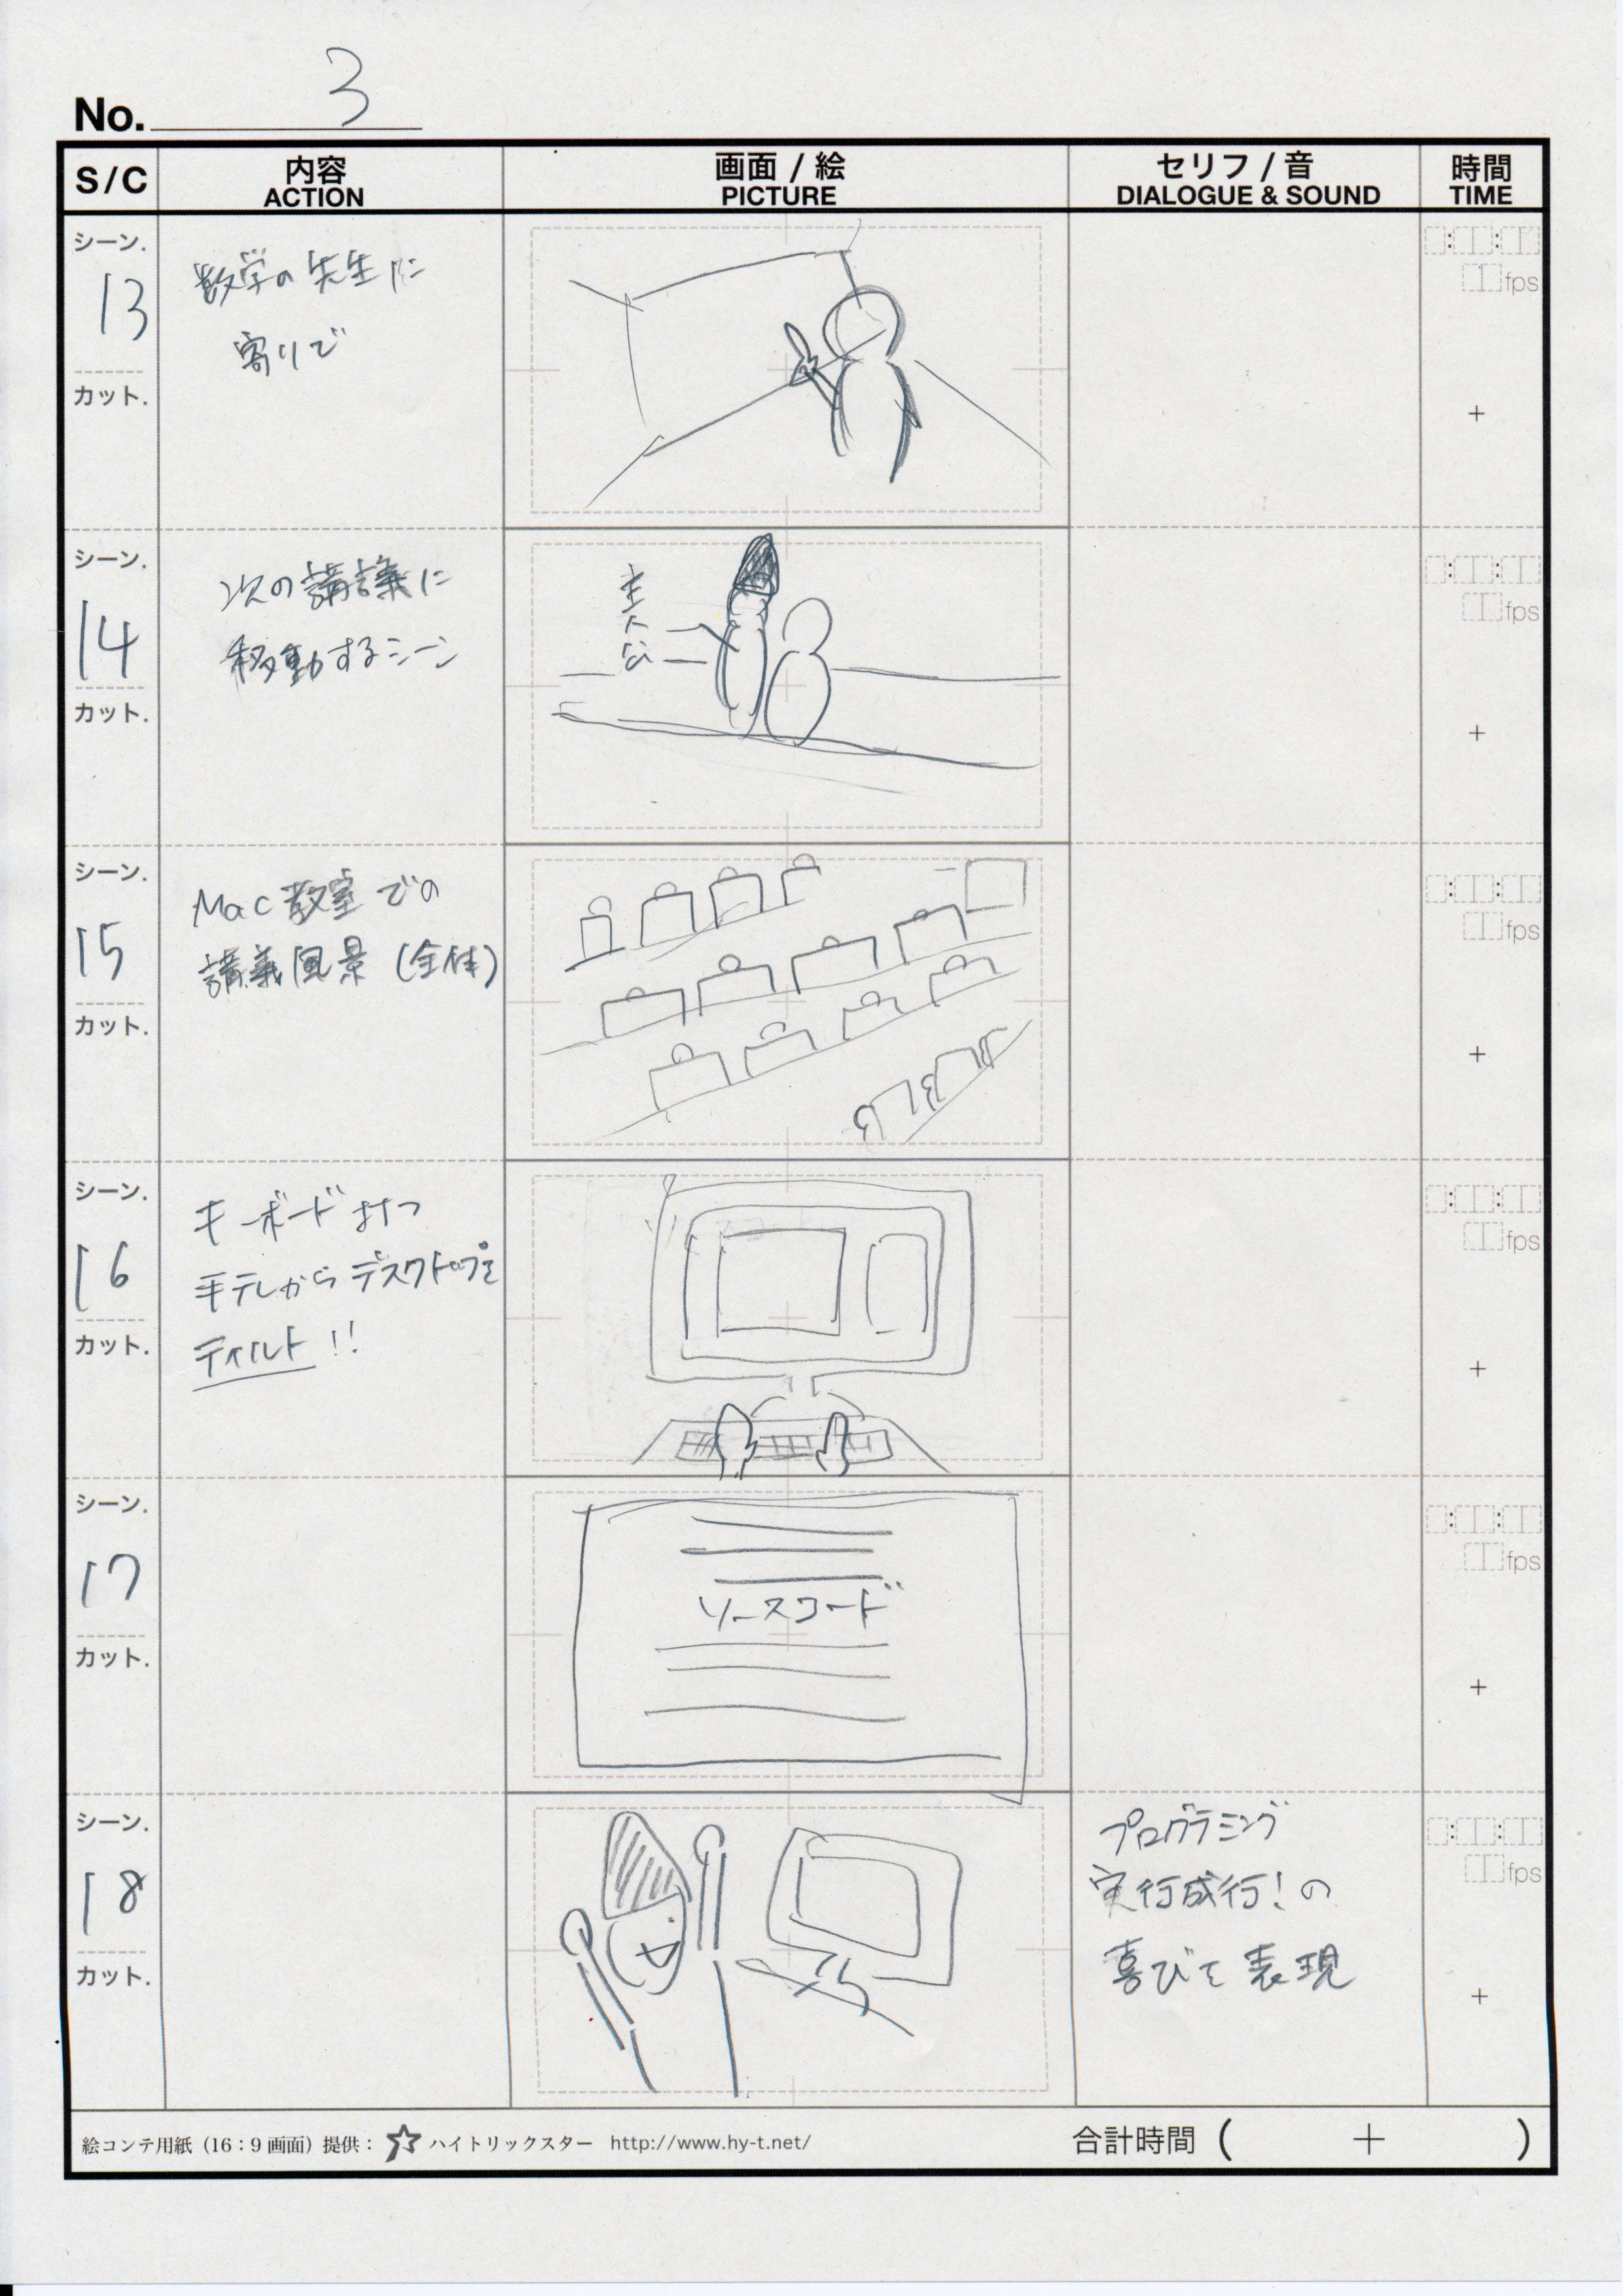 No. 3
S/C
内容
ACTION
画面 / 絵
PICTURE
セリフ / 音
DIALOGUE & SOUND
時間
TIME
シーン.
13
カット.
数学の先生に
寄りで
fps
+
シーン.
14
カット.
次の講義に
移動するシーン
主人公
fps
+
シーン.
15
カット.
Mac教室での
講義風景(全体)
fps
+
シーン.
16
カット.
キーボード打つ
手元からデスクトップを
ティルト!!
fps
+
シーン.
17
カット.
ソースコード
fps
+
シーン.
18
カット.
プログラミング
実行成行!の
喜びを表現
fps
+
絵コンテ用紙(16:9画面)提供: ハイトリックスター http://www.hy-t.net/
合計時間 ( + )